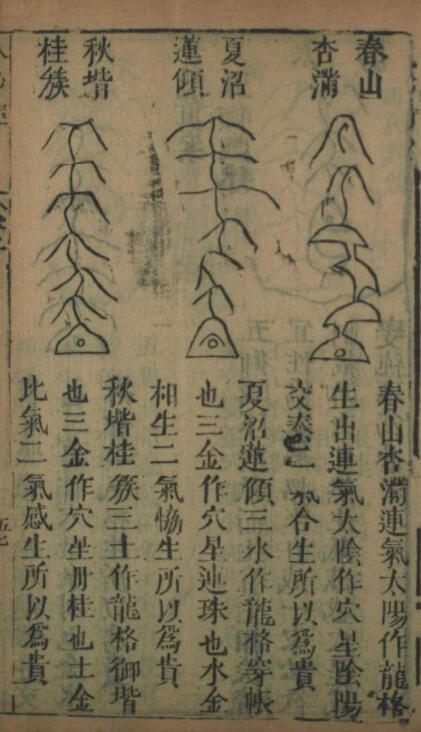 春山
杏滿
夏沼
蓮傾
秋堦
桂簇
春山杏滿連氣太陽作龍格
生出連氣太陰作穴星陰陽
交泰二氣合生所以爲貴
夏沼蓮傾三水作龍格穿帳
也三金作穴星連珠也水金
相生二氣恊生所以爲貴
秋堦桂簇三土作龍格御堦
也三金作穴星丹桂也土金
比氣二氣感生所以爲貴